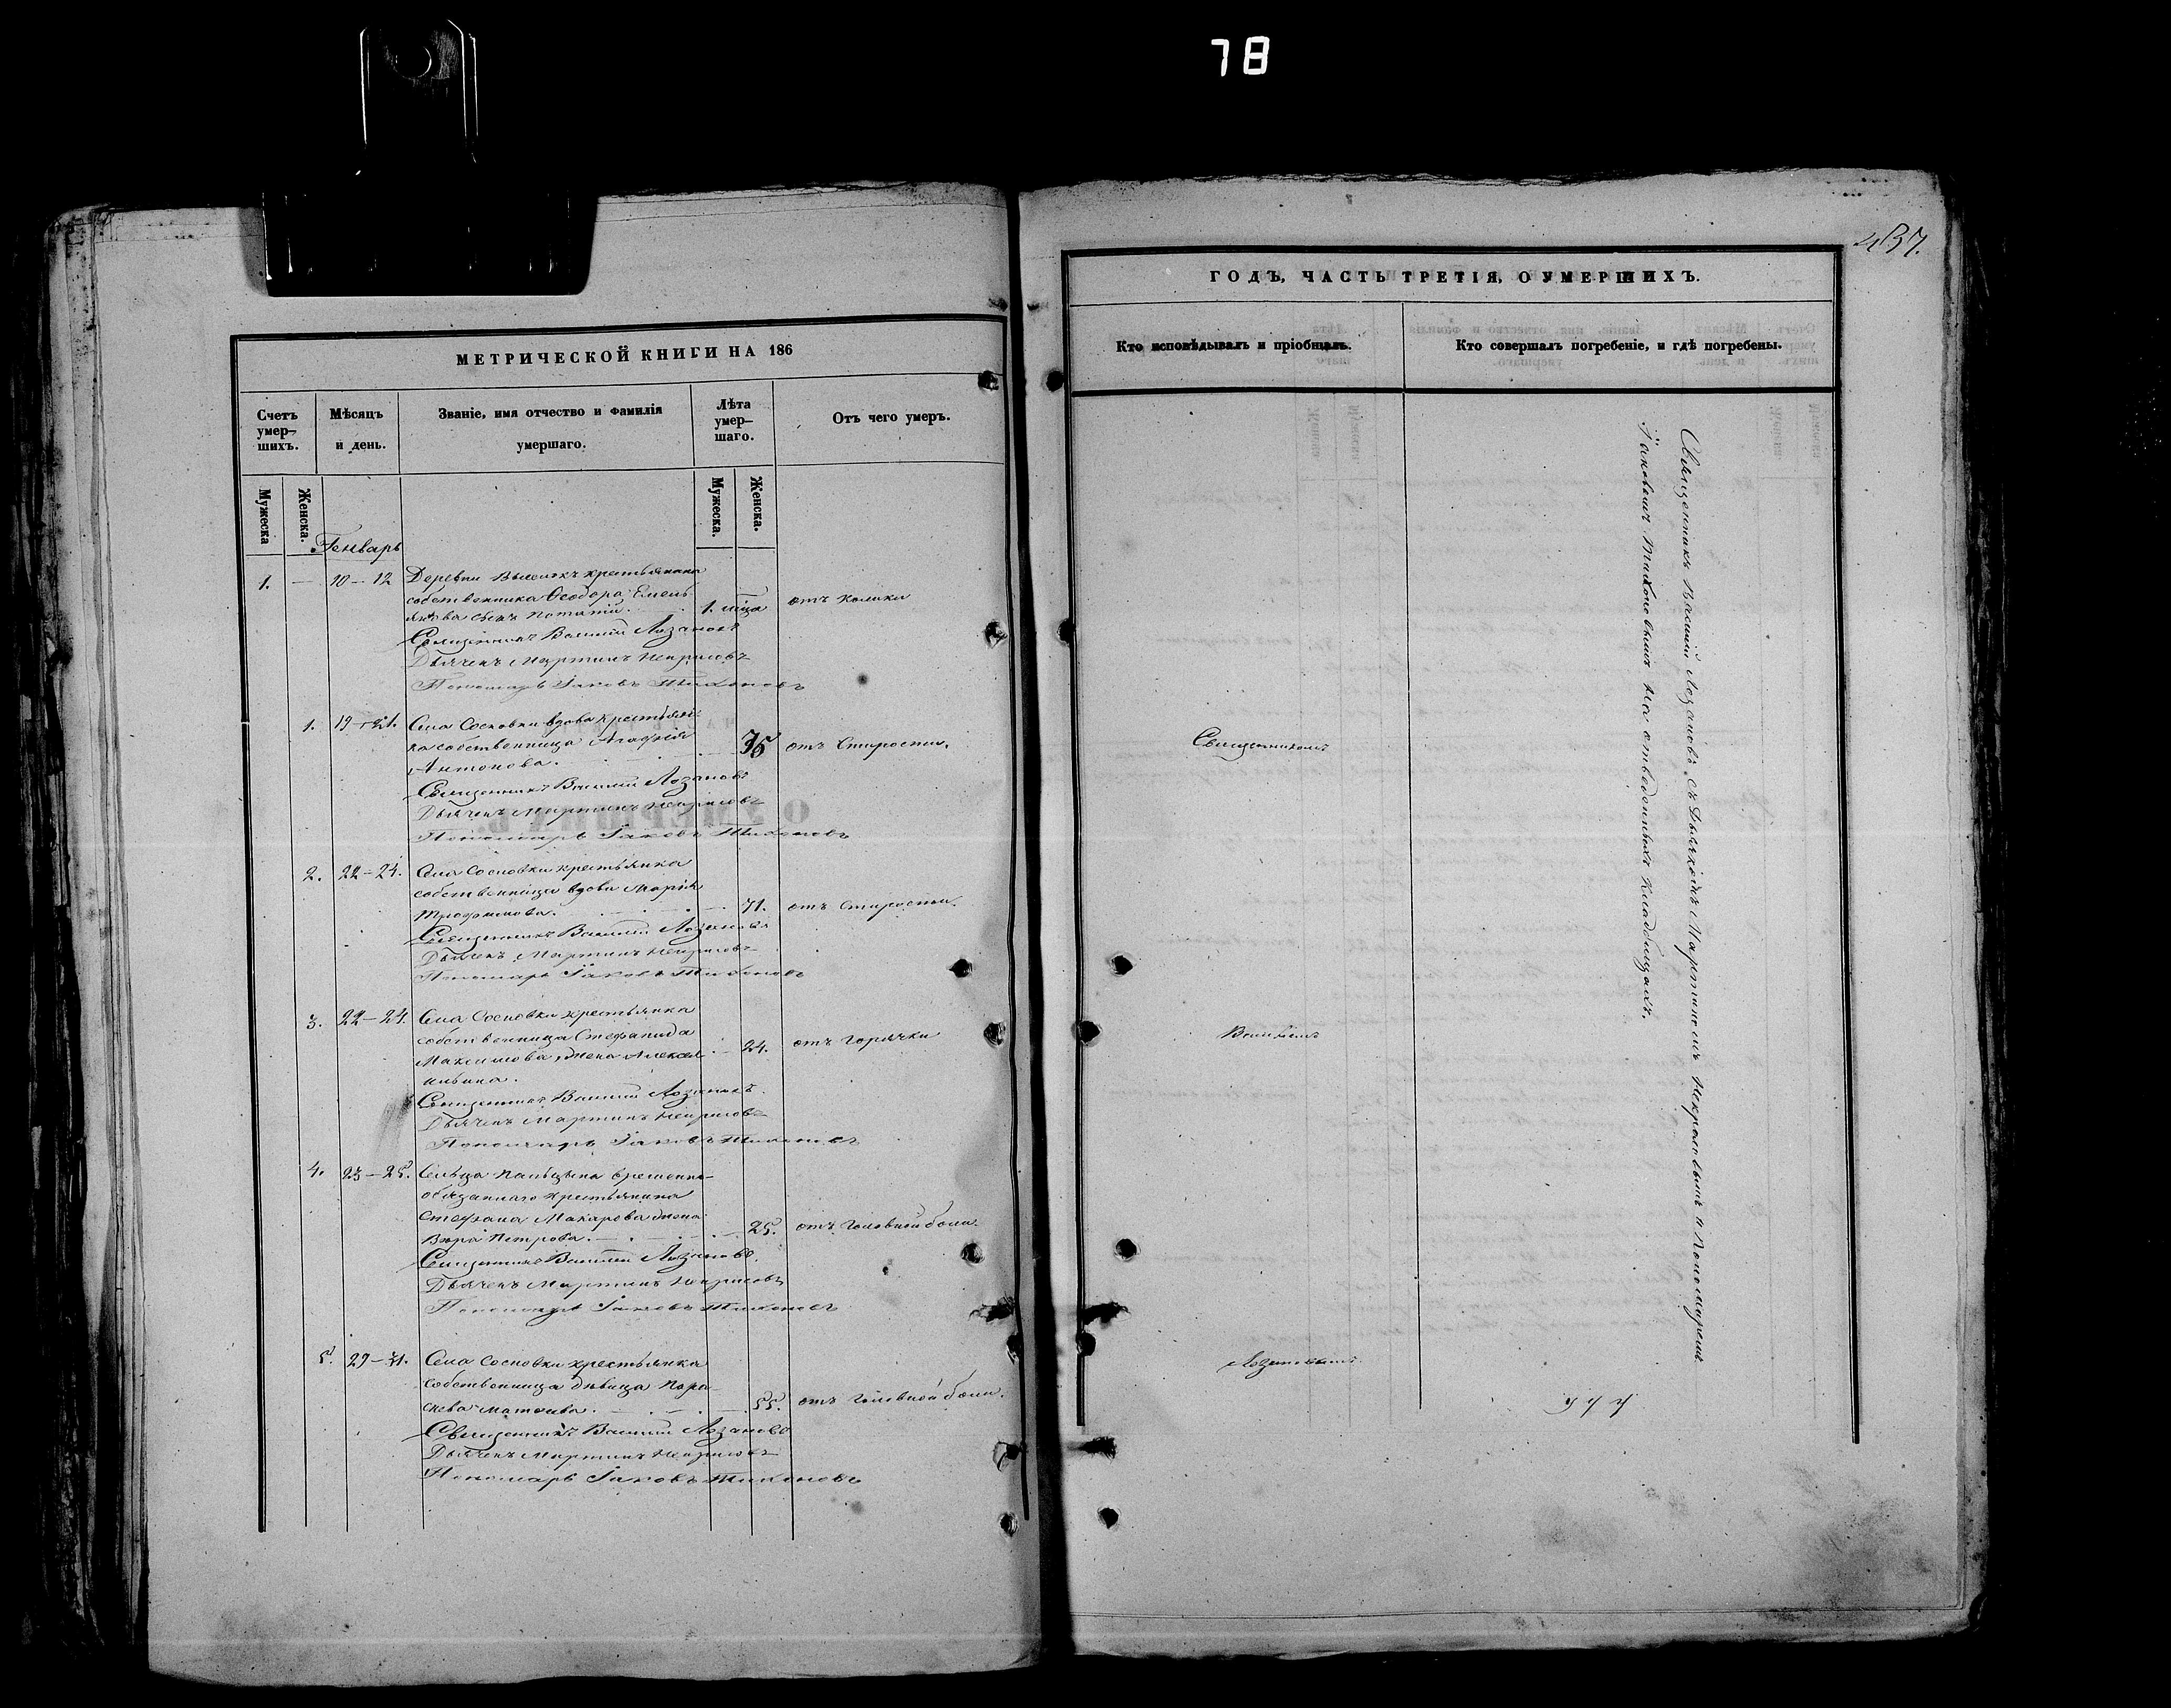 78
437.
МЕТРИЧЕСКОЙ КНИГИ НА 186
Счетъ умер-шихъ.
Мѣсяцъ и день.
Званіе, имя отчество и фамилія умершаго.
Лѣта умер-шаго.
Отъ чего умеръ.
Мужеска
Женска.
Мужеска.
Женска.
Генварь
1. — 10–12 Деревни крестьянина
собственника Ѳеодора Емель
янова сынъ 1. мца отъ колики
Священникъ Василій Лозановъ
Дьячекъ Мартинъ Некрасовъ
Пономарь Іаковъ Тихоновъ
1. 19–21. Села Сосновки вдова крестьян-
ка собственница Агафія
Антонова. 75 отъ Старости.
Священникъ Василій Лозановъ
Дьячекъ Мартинъ Некрасовъ
Пономарь Іаковъ Тихоновъ
2. 22–24. Села Сосновки крестьянка
собственница вдова Марія
Трофимова. 71. отъ Старости.
Священникъ Василій Лозановъ
Дьячекъ Мартинъ Некрасовъ
Пономарь Іаковъ Тихоновъ
3. 22–24. Села Сосновки крестьянка
собственница Стефанида
Максимова, жена Алексея 24. отъ горячки
Священникъ Василій Лозановъ
Дьячекъ Мартинъ Некрасовъ
Пономарь Іаковъ Тихоновъ
4. 23–25. Сельца временно-
обязаннаго крестьянина
Стефана Макарова жена
Петрова. 25. отъ головной боли.
Священникъ Василій Лозановъ
Дьячекъ Мартинъ Некрасовъ
Пономарь Іаковъ Тихоновъ
5. 29–31. Села Сосновки крестьянка
собственница дѣвица Пара-
скева 55. отъ головной боли.
Священникъ Василій Лозановъ
Дьячекъ Мартинъ Некрасовъ
Пономарь Іаковъ Тихоновъ
ГОДЪ, ЧАСТЬ ТРЕТІЯ, О УМЕРШИХЪ.
Кто исповѣдывалъ и пріобщалъ.
Кто совершалъ погребеніе, и гдѣ погребены.
Священникомъ
Лозановымъ.
Священникъ Василій Лозановъ съ Дьячкомъ Мартиномъ Некрасовымъ и Пономаремъ
Іаковомъ Тихоновымъ на отведенныхъ кладбищахъ.